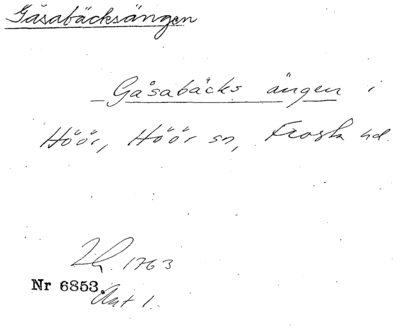 Gåsabäcksängen
Gåsabäcks ängen i
Höör, Höör sn, Frosta hd.
1763
Nr 6853.
Akt 1.